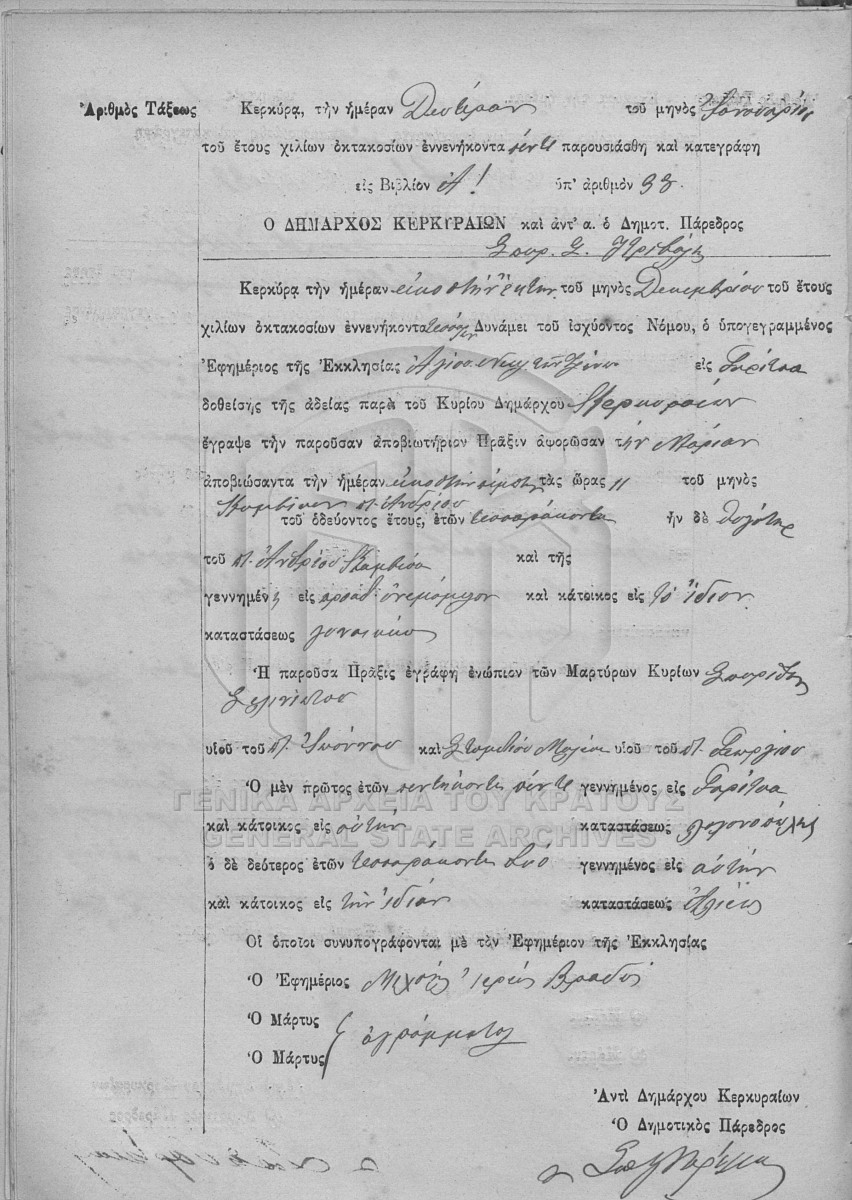 Ἀριθμὸς Τάξεως
Κερκύρᾳ, τὴν ἡμέραν Δευτέραν τοῦ μηνὸς Ἰανουαρίου
τοῦ ἔτους χιλίων ὀκτακοσίων ἐννενήκοντα πέντε παρουσιάσθη καὶ κατεγράφη
εἰς Βιβλίον Α! ὑπ' ἀριθμὸν 33.
Ὁ ΔΗΜΑΡΧΟΣ ΚΕΡΚΥΡΑΙΩΝ καὶ ἀντ' α. ὁ Δημοτ. Πάρεδρος
Σπυρ. Σ.
Κερκύρᾳ τὴν ἡμέραν εἰκοστὴν ἕκτην τοῦ μηνὸς Δεκεμβρίου τοῦ ἔτους
χιλίων ὀκτακοσίων ἐννενήκοντα τεσσάρων Δυνάμει τοῦ ἰσχύοντος Νόμου, ὁ ὑπογεγραμμένος
Ἐφημέριος τῆς Ἐκκλησίας Ἁγίου Νικ. τῶν Ξένων εἰς Γαρίτσα
δοθείσης τῆς ἀδείας παρὰ τοῦ Κυρίου Δημάρχου Κερκυραίων
ἔγραψε τὴν παροῦσαν ἀποβιωτήριον Πρᾶξιν ἀφορῶσαν τὴν Μαρίαν
ἀποβιώσαντα τὴν ἡμέραν εἰκοστὴν πέμπτην τὰς ὥρας 11 τοῦ μηνὸς
π. Ἀνδρέου
τοῦ ὁδεύοντος ἔτους, ἐτῶν τεσσαράκοντα ἦν δὲ θυγάτηρ
τοῦ π. Ἀνδρέου καὶ τῆς
γεννημένη εἰς προάστ. Ἀνεμόμυλον καὶ κάτοικος εἰς τὸ ἴδιον
καταστάσεως
Ἡ παροῦσα Πρᾶξις ἐγράφη ἐνώπιον τῶν Μαρτύρων Κυρίων Σπυρίδων
υἱοῦ τοῦ π. Ἰωάννου καὶ Σταματίου υἱοῦ τοῦ π. Γεωργίου
Ὁ μὲν πρῶτος ἐτῶν πεντήκοντα πέντε γεννημένος εἰς Γαρίτσα
καὶ κάτοικος εἰς αὐτὴν καταστάσεως
ὁ δὲ δεύτερος ἐτῶν τεσσαράκοντα δύο γεννημένος εἰς αὐτὴν
καὶ κάτοικος εἰς τὴν ἰδίαν καταστάσεως ἁλιεὺς
Οἱ ὁποῖοι συνυπογράφονται μὲ τὸν Ἐφημέριον τῆς Ἐκκλησίας
Ὁ Ἐφημέριος Μιχαὴλ ἱερεὺς
Ὁ Μάρτυς
ἀγράμματοι
Ὁ Μάρτυς
Ἀντὶ Δημάρχου Κερκυραίων
Ὁ Δημοτικὸς Πάρεδρος
ΓΕΝΙΚΑ ΑΡΧΕΙΑ ΤΟΥ ΚΡΑΤΟΥΣ
GENERAL STATE ARCHIVES